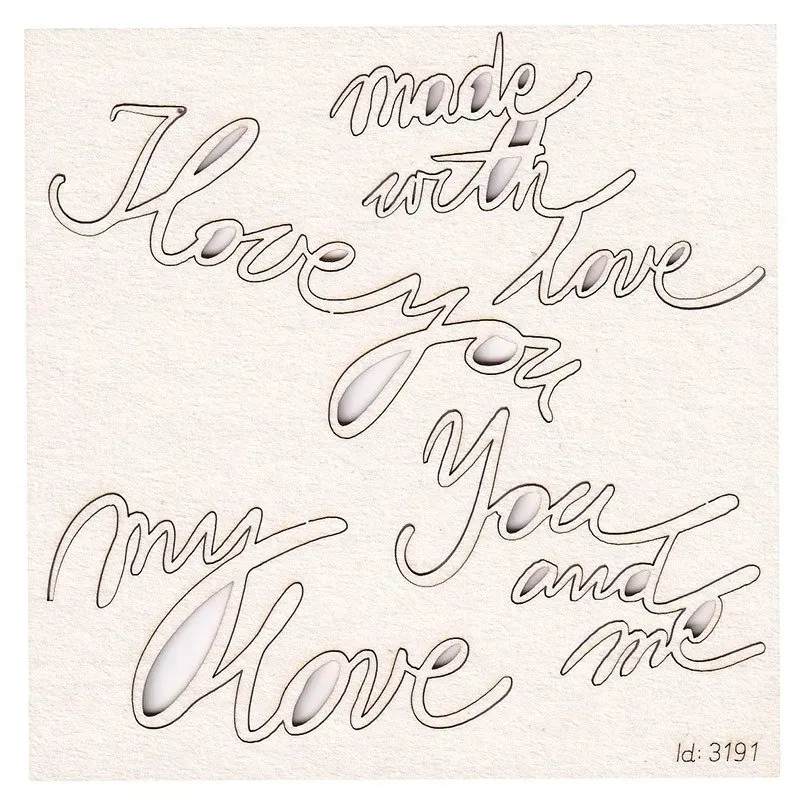 I love you
made
with
love
my
love
You
and
me
Id: 3191